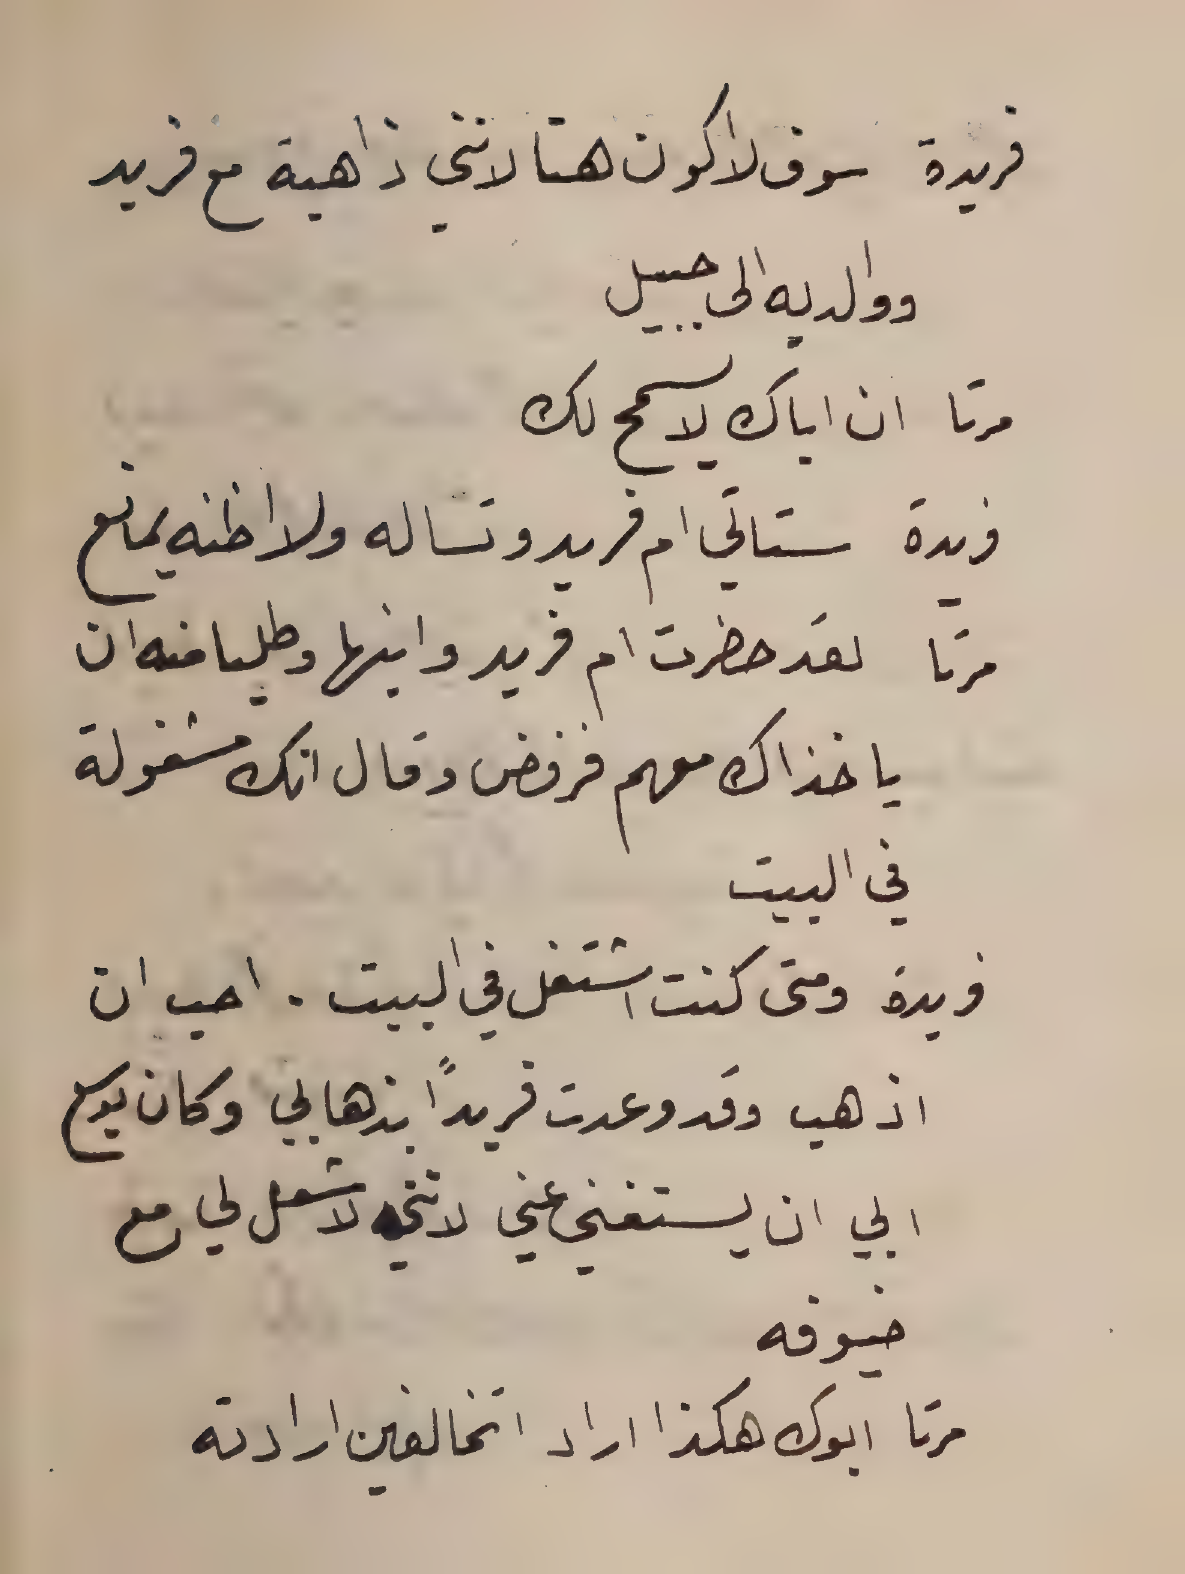 فريدة سوف لا اكون هنا لانني ذاهبة مع فريد
ووالديه الى جبيل
مرتا ان اباك لا يسمح لك
فريدة ستاتي ام فريد وتساله ولا اظنه يمانع
مرتا لقد حضرت ام فريد وابنها وطلبا منه ان
ياخذاك معهم فرفض وقال انك مشغولة
في البيت
فريدة ومتى كنت اشتغل في البيت . احب ان
اذهب وقد وعدت فريداً بذهابي وكان بوسع
ابي ان يستغني عني لانني لا شغل لي مع
ضيوفه
مرتا ابوك هكذا اراد اتخالفين ارادته